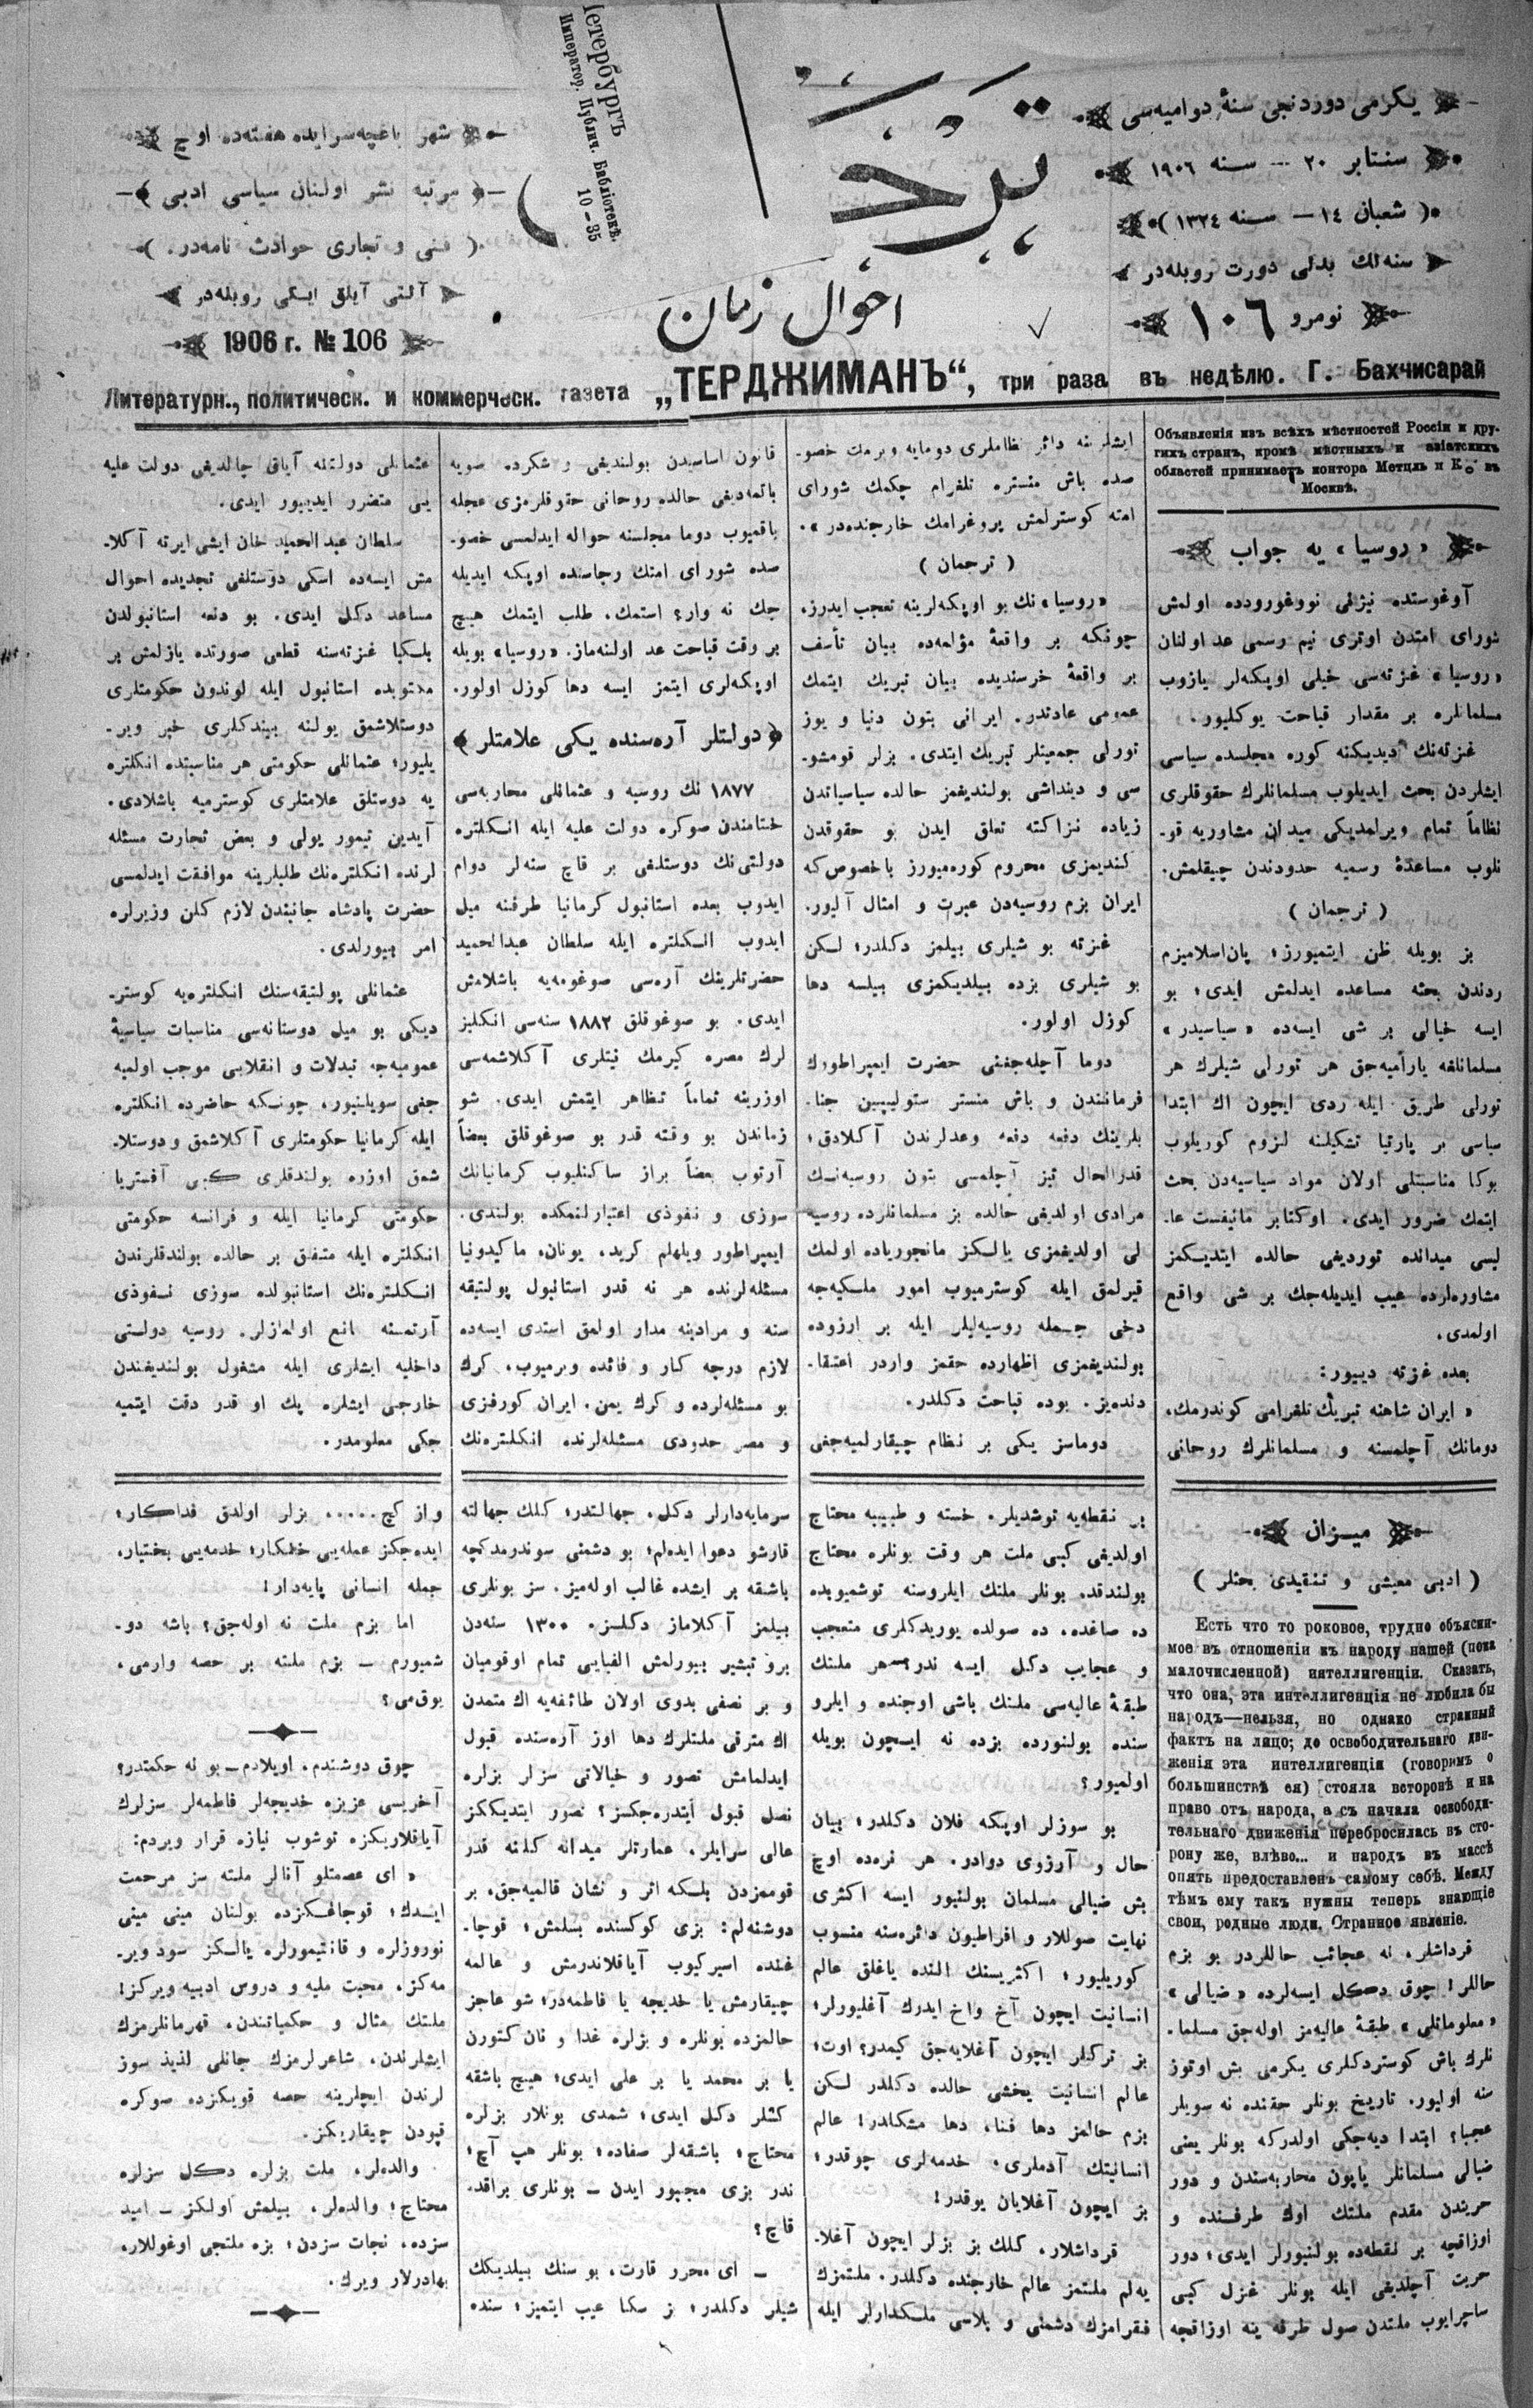 یكرمی دوردنجی سنهٔ دوامیه‌سی
سنتابر ٢٠ — سنه ١٩٠٦
( شعبان ١٤ — سنه ١٣٢٤ )
سنه‌لك بدلی دورت روبله‌در
نومرو ١٠٦
ترجمان
احوال زمان
شهر باغچه‌سرایده هفته‌ده اوچ
مرتبه نشر اولنان سیاسی ادبی
( فنی و تجاری حوادث نامه‌در. )
آلتی آیلق ایكی روبله‌در
1906 г. № 106
Петербургъ
Император. Публич. Библіотекѣ.
10-35
Литературн., политическ. и коммерческ. газета „ТЕРДЖИМАНЪ“, три раза въ недѣлю. Г. Бахчисарай
Объявленія изъ всѣхъ мѣстностей Россіи и дру-
гихъ странъ, кромѣ мѣстныхъ и азіатскихъ
областей принимаетъ контора Метцль и К° въ
Москвѣ.
« روسیا » یه جواب
آوغوستده نیژنی نووغورودده اولمش
شورای امتدن اوتری نیم رسمی عد اولنان
« روسیا » غزته‌سی خیلی اوپكه‌لر یازوب
مسلمانلره بر مقدار قباحت یوكلیور.
غزته‌نك دیدیكنه كوره مجلسده سیاسی
ایشلردن بحث ایدیلوب مسلمانلرك حقوقلری
نظاماً تمام ویرلمدیكی میدان مشاوریه قو-
نلوب مساعدهٔ رسمیه حدودندن چیقلمش.
( ترجمان )
بز بویله ظن ایتمیورز؛ پان‌اسلامیزم
ردندن بحثه مساعده ایدلمش ایدی؛ بو
ایسه خیالی بر شی ایسه‌ده « سیاسیدر »
مسلمانلغه یارامیه‌جق هر تورلی شیلرك هر
تورلی طریق ایله ردی ایچون اك ابتدا
سیاسی بر پارتیا تشكیلنه لزوم كوریلوب
بوكا مناسبتلی اولان مواد سیاسیه‌دن بحث
ایتمك ضرور ایدی. اوكتابر مانیفست عا-
لیسی میدانده توردیغی حالده ایتدیكمز
مشاوره‌لرده عیب ایدیله‌جك بر شی واقع
اولمدی.
بعده غزته دیییور:
« ایران شاهنه تبریك تلغرامی كوندرمك،
دومانك آچلمسنه و مسلمانلرك روحانی
ایشلرینه دائر نظاملری دومایه ویرمك خصو-
صده باش منستره تلغرام چكمك شورای
امته كوسترلمش پروغرامك خارجنده‌در ».
( ترجمان )
« روسیا » نك بو اوپكه‌لرینه تعجب ایدرز.
چونكه بر واقعهٔ مؤلمه‌ده بیان تأسف
بر واقعهٔ خرسندیده بیان تبریك ایتمك
عمومی عادتدر. ایرانی بتون دنیا و یوز
تورلی جمعیتلر تبریك ایتدی. بزلر قومشو-
سی و دینداشی بولندیغمز حالده سیاسیاتدن
زیاده نزاكته تعلق ایدن بو حقوقدن
كندیمزی محروم كوره‌میورز باخصوص كه
ایران بزم روسیه‌دن عبرت و امثال آلیور.
غزته بو شیلری بیلمز دكلدر؛ لكن
بو شیلری بزده بیلدیكمزی بیلسه دها
كوزل اولور.
دوما آچله‌جغنی حضرت ایمپراطورك
فرمانندن و باش منستر ستولیپین جنا-
بلرینك دفعه دفعه وعدلرندن آكلادق؛
قدرالحال تیز آچلمسی بتون روسیه‌نك
مرادی اولدیغی حالده بز مسلمانلرده روسیه
لی اولدیغمزی یالكز مانجوریاده اولمك
قیرلمق ایله كوسترمیوب امور ملكیه‌جه
دخی جمله روسیه‌لیلر ایله بر ارزوده
بولندیغمزی اظهارده حقمز واردر اعتقا-
دنده‌یز. بوده قباحت دكلدر.
دوماسز یكی بر نظام چیقارلمیه‌جغی
قانون اساسیدن بولندیغی و شكرده صویه
باتمه‌دیغی حالده روحانی حقوقلرمزی عجله
باقمیوب دوما مجلسنه حواله ایدلمسی خصو-
صده شورای امتك رجاسنده اوپكه ایدیله
جك نه وار؟ استمك، طلب ایتمك هیچ
بر وقت قباحت عد اولنه‌ماز. « روسیا » بویله
اوپكه‌لری ایتمز ایسه دها كوزل اولور.
﴿ دولتلر آره‌سنده یكی علامتلر ﴾
١٨٧٧ نك روسیه و عثمانلی محاربه‌سی
ختامندن صوكره دولت علیه ایله انكلتره
دولتی‌نك دوستلغی بر قاچ سنه‌لر دوام
ایدوب بعده استانبول كرمانیا طرفنه میل
ایدوب انكلتره ایله سلطان عبدالحمید
حضرتلرینك آره‌سی صوغومه‌یه باشلامش
ایدی. بو صوغوقلق ١٨٨٢ سنه‌سی انكلیز
لرك مصره كیرمك نیتلری آكلاشمه‌سی
اوزرینه تماماً تظاهر ایتمش ایدی. شو
زماندن بو وقته قدر بو صوغوقلق بعضاً
آرتوب بعضاً براز ساكنلیوب كرمانیانك
سوزی و نفوذی اعتبارلنمكده بولندی.
ایمپراطور ویلهلم كرید، یونان، ماكیدونیا
مسئله‌لرنده هر نه قدر استانبول پولتیقه
سنه و مرادینه مدار اولمق استدی ایسه‌ده
لازم درجه كار و فائده ویرمیوب، كرك
بو مسئله‌لرده و كرك یمن، ایران كورفزی
و مصر حدودی مسئله‌لرنده انكلتره‌نك
عثمانلی دولتنه آیاق چالدیغی دولت علیه
یی متضرر ایدییور ایدی.
سلطان عبدالحمید خان ایشی ایرته آكلا-
مش ایسه‌ده اسكی دوستلغی تجدیده احوال
مساعد دكل ایدی. بو دفعه استانبولدن
بلچیكا غزته‌سنه قطعی صورتده یازلمش بر
مكتوبده استانبول ایله لوندون حكومتلری
دوستلاشمق یولنه بیندكلری خبر ویر-
یلیور؛ عثمانلی حكومتی هر مناسبتده انكلتره
یه دوستلق علامتلری كوسترمیه باشلادی.
آیدین تیمور یولی و بعض تجارت مسئله
لرنده انكلتره‌نك طلبلرینه موافقت ایدلمسی
حضرت پادشاه جانبندن لازم كلن وزیرلره
امر بیورلدی.
عثمانلی پولتیقه‌سنك انكلتره‌یه كوستر-
دیكی بو میل دوستانه‌سی مناسبات سیاسیهٔ
عمومیه‌جه تبدلات و انقلابی موجب اولمیه
جغی سویلنیور، چونكه حاضرده انكلتره
ایله كرمانیا حكومتلری آكلاشمق و دوستلا-
شمق اوزره بولندقلری كبی آفستریا
حكومتی كرمانیا ایله و فرانسه حكومتی
انكلتره ایله متفق بر حالده بولندقلرندن
انكلتره‌نك استانبولده سوزی نفوذی
آرتمسنه مانع اولمازلر. روسیه دولتی
داخلیه ایشلری ایله مشغول بولندیغندن
خارجی ایشلره پك او قدر دقت ایتمیه
جكی معلومدر.
میزان
( ادبی معیشی و تنقیدی بحثلر )
Есть что то роковое, трудно объясни-
мое въ отношеніи къ народу нашей (пока
малочисленной) интеллигенціи. Сказать,
что она, эта интеллигенція не любила бы
народъ—нельзя, но однако странный
фактъ на лицо; до освободительнаго дви-
женія эта интеллигенція (говоримъ о
большинствѣ ея) стояла всторонѣ и на
право отъ народа, а съ начала освободи-
тельнаго движенія перебросилась въ сто-
рону же, влѣво... и народъ въ массѣ
опять предоставленъ самому себѣ. Между
тѣмъ ему такъ нужны теперь знающіе
свои, родные люди. Странное явленіе.
قرداشلر، نه عجائب حاللردر بو بزم
حاللر! چوق دكل ایسه‌لرده « ضیالی »
« معلوماتلی » طبقهٔ عالیه‌مز اوله‌جق مسلما-
نلرك باش كوستردكلری یكرمی بش اوتوز
سنه اولیور. تاریخ بونلر حقنده نه سویلر
عجبا؟ ابتدا دیه‌جكی اولدركه بونلر یعنی
ضیالی مسلمانلر یاپون محاربه‌سندن و دور
حریتدن مقدم ملتك اوك طرفنده و
اوزاقچه بر نقطه‌ده بولنیورلر ایدی؛ دور
حریت آچلدیغی ایله بونلر غزل كبی
ساچرایوب ملتدن صول طرفه ینه اوزاقچه
بر نقطه‌یه توشدیلر. خسته و طبیبه محتاج
اولدیغی كبی ملت هر وقت بونلره محتاج
بولندقده، بونلر ملتك ایلروسنه توشمیوبده
ده صاغده، ده صولده یوریدكلری متعجب
و عجایب دكل ایسه ندر؟ هر ملتك
طبقهٔ عالیه‌سی ملتك باشی اوجنده و ایلرو
سنده بولنورده بزده نه ایچون بویله
اولمیور؟
بو سوزلر اوپكه فلان دكلدر؛ بیان
حال و آرزوی دوادر. هر نره‌ده اوچ
بش ضیالی مسلمان بولنیور ایسه اكثری
نهایت صوللار و افراطیون دائره‌سنه منسوب
كوریلیور؛ اكثریسنك النده یاغلق عالم
انسانیت ایچون آخ واخ ایدرك آغلیورلر؛
بز تركلر ایچون آغلایه‌جق كیمدر؟ اوت؛
عالم انسانیت یخشی حالده دكلدر لكن
بزم حالمز دها فنا، دها مشكلدر! عالم
انسانیتك آدملری، خدمه‌لری چوقدر؛
بز ایچون آغلایان یوقدر!
قرداشلار، كلك بز بزلر ایچون آغلا-
یه‌لم ملتمز عالم خارجنده دكلدر. ملتمزك
فقرامزك دشمنی و بلاسی ملكدارلر ایله
سرمایه‌دارلر دكل، جهالتدر؛ كلك جهالته
قارشو دعوا ایده‌لم؛ بو دشمنی سوندرمدكچه
باشقه بر ایشده غالب اوله‌میز. سز بونلری
بیلمز آكلاماز دكلسز. ١٣٠٠ سنه‌دن
برو تبشیر بیورلمش الفبایی تمام اوقومیان
و بر نصفی بدوی اولان طائفه‌یه اك متمدن
اك مترقی ملتلرك دها اوز آره‌سنده قبول
ایدلمامش تصور و خیالاتی سزلر بزلره
نصل قبول ایتدره‌جكسز؟ تصور ایتدیككز
عالی سرایلر، عمارتلر میدانه كلنه قدر
قوممزدن بلكه اثر و نشان قالمیه‌جق، بر
دوشنه‌لم: بزی كوكسنده بسلمش؛ قوجا-
غنده اسیركیوب آیاقلاندرمش و عالمه
چیقارمش یا خدیجه یا فاطمه‌در؛ شو عاجز
حالمزده بونلره و بزلره غدا و نان كتورن
یا بر محمد یا بر علی ایدی؛ هیچ باشقه
كشلر دكل ایدی؛ شمدی بونلار بزلره
محتاج؛ باشقه‌لر صفاده؛ بونلر هپ آچ؛
ندر بزی مجبور ایدن — بونلری براقه-
قاچ؟
— ای محرر قارت، بو سنك بیلدیكك
شیلر دكلدر؛ بز سكا عیب ایتمیز؛ سنده
واز كچ ..... بزلر اولدق فداكار؛
ایده‌جكز عمله‌یی حكمكار؛ خدمه‌یی بختیار،
جمله انسانی پایه‌دار!
اما بزم ملت نه اوله‌جق؟ باشه دو-
شمیورم — بزم ملته بر حصه وارمی،
یوق‌می؟
چوق دوشندم، اویلادم — بو نه حكمتدر؟
آخریسی عزیزه خدیجه‌لر فاطمه‌لر سزلرك
آیاقلاریكزه توشوب نیازه قرار ویردم:
« ای عصمتلو آنالر ملته سز مرحمت
ایدك؛ قوجاغكزده بولنان مینی مینی
نوروزلره و قانتیمورلره یالكز سود ویر-
مه‌كز، محبت ملیه و دروس ادبیه ویركز!
ملتك مثال و حكایاتندن، قهرمانلرمزك
ایشلرندن، شاعرلرمزك جانلی لذیذ سوز
لرندن ایچلرینه حصه قویكزده صوكره
قپودن چیقاریكز.
والده‌لر، ملت بزلره دكل سزلره
محتاج؛ والده‌لر، بیلمش اولكز — امید
سزده، نجات سزدن؛ بزه ملتجی اوغوللار،
بهادرلار ویرك.